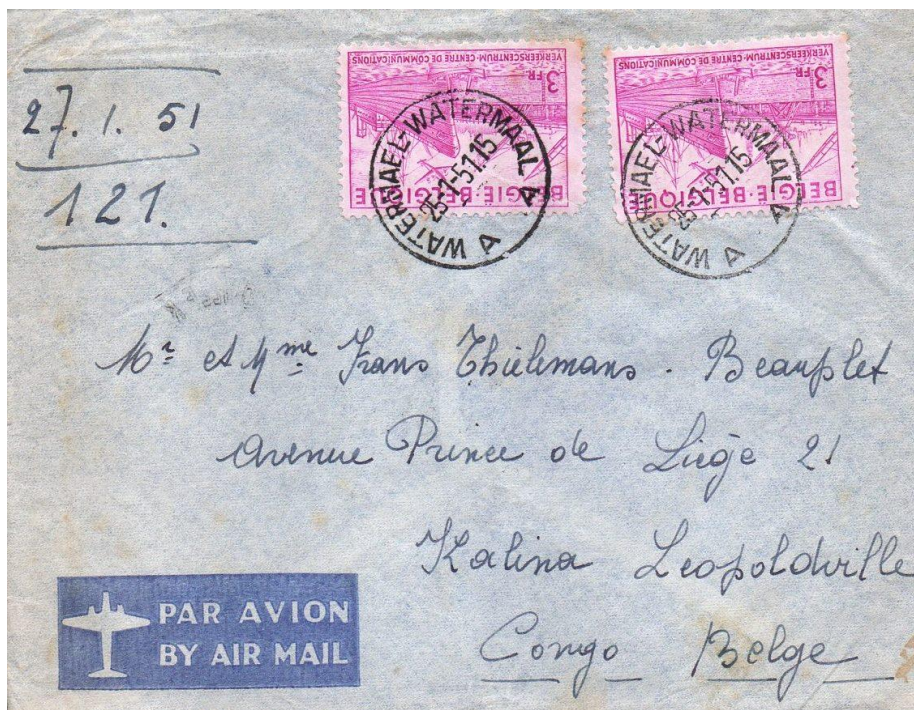 27. 1. 51
121.
3 FR
VERKEERSCENTRUM-CENTRE DE COMMUNICATIONS
BELGIE·BELGIQUE
WATERMAEL-WATERMAAL
25-1-51.15
A A
3 FR
VERKEERSCENTRUM-CENTRE DE COMMUNICATIONS
BELGIE·BELGIQUE
WATERMAEL-WATERMAAL
25-1-51.15
A A
Mr et Mme Frans Thielemans - Beauplet
Avenue Prince de Liège 21
Kalina Leopoldville
Congo Belge
PAR AVION
BY AIR MAIL